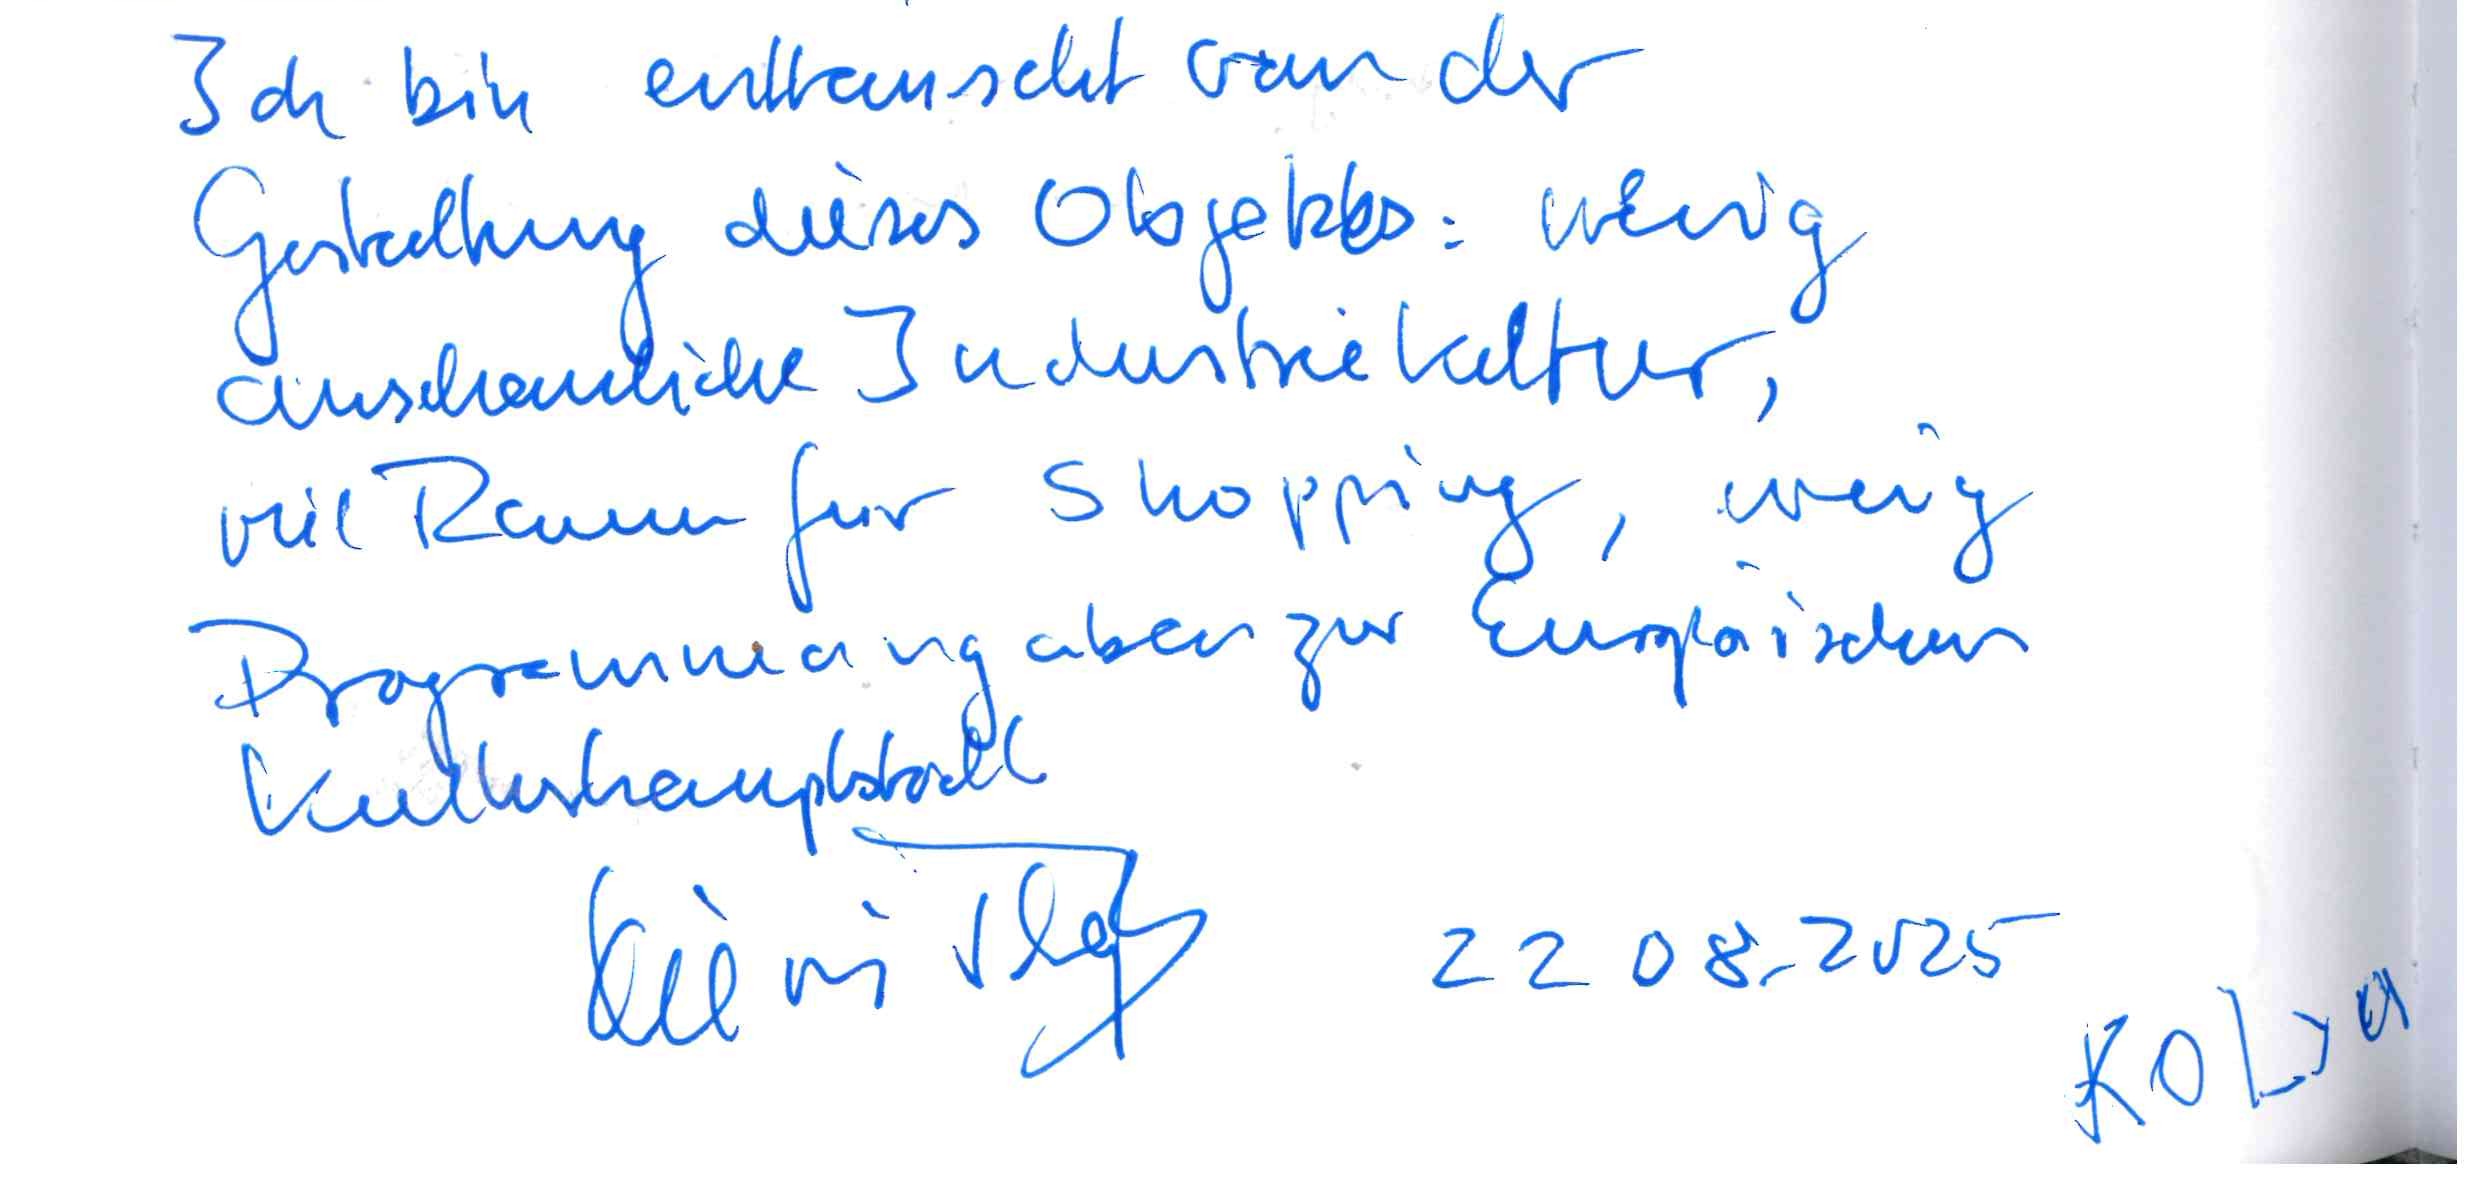 Ich bin enttäuscht von der
Gestaltung dieses Objektes: wenig
anschauliche Industriekultur,
viel Raum für Shopping, wenig
Programm aber zur Europäischen
Kulturhauptstadt
22 08.2025